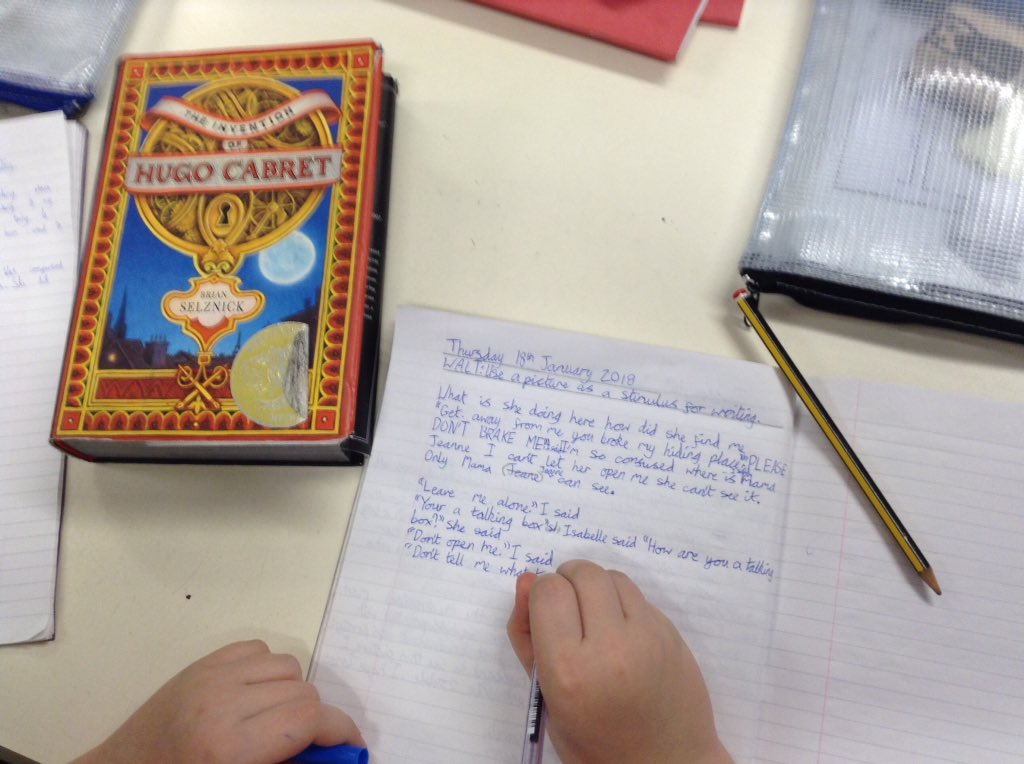 THE INVENTION
OF
HUGO CABRET
BRIAN
SELZNICK
Thursday 18th January 2018
WALT: Use a picture as a stimulus for writing.
What is she doing here how did she find me
"Get away from me you broke my hiding place PLEASE
DON'T BRAKE ME" I'm so confused where is Mama
Jeanne I can't let her open me she can't see it.
Only Mama Jeanne can see.
"Leave me alone." I said
"Your a talking box" Isabelle said "How are you a talking
box?" she said
"Don't open me." I said
"Don't tell me what